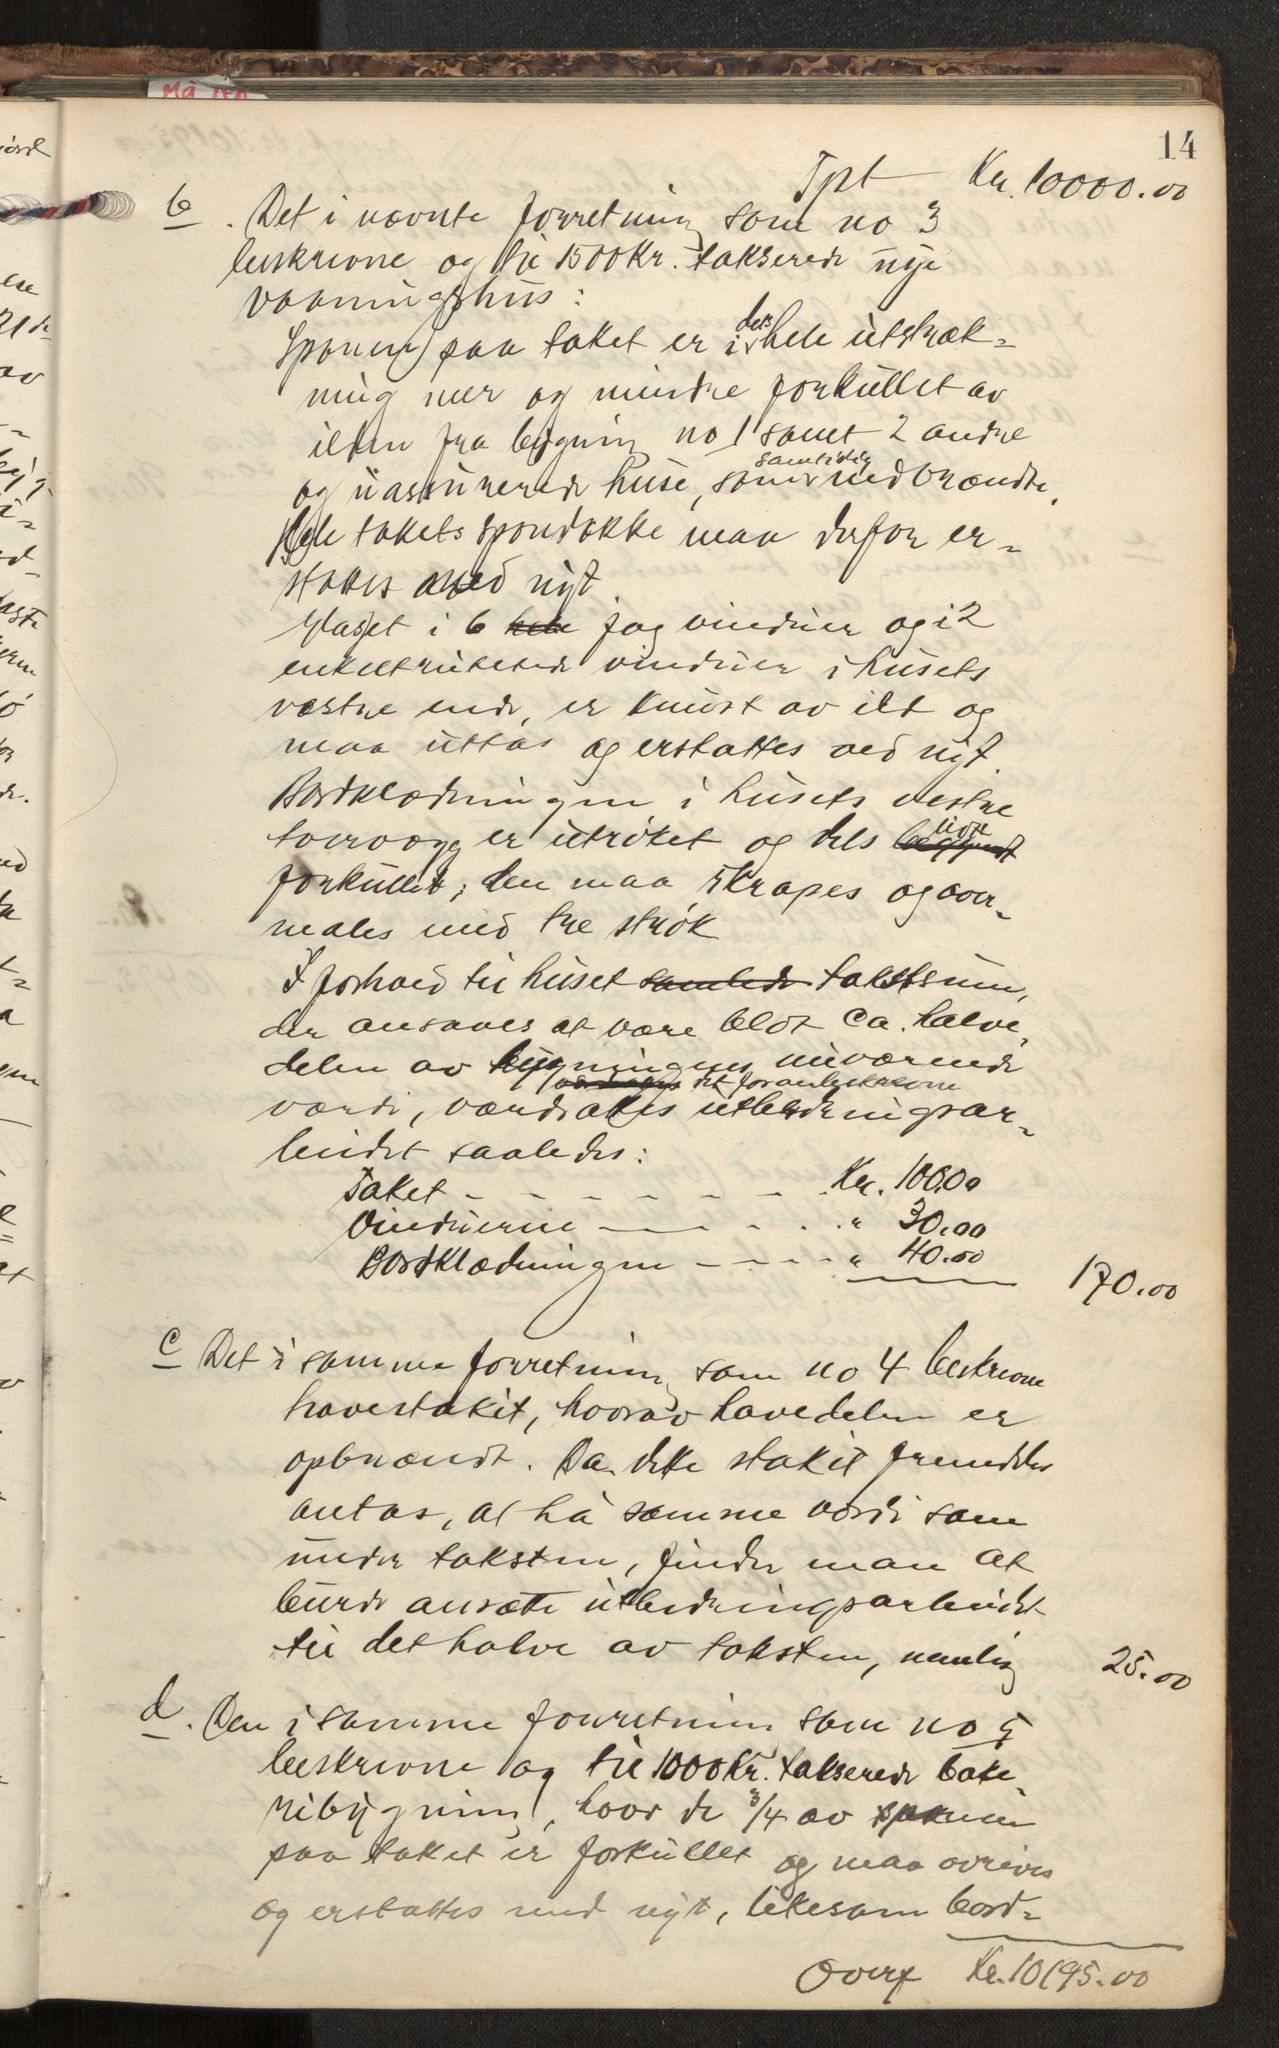 14
Tpt Kr. 10000.00
b. Det i nævnte forretning som no 3
beskrevne og til 1500 Kr. takserede nye
vaaningshus:
Sponen paa taket er i dets hele utstræk-
ning mer og mindre forkullet av
ilden fra bygning no 1 samt 2 andre
og uassurerede huse, som samtidig nedbrændte.
Hele takets spondække maa derfor er-
stattes med nyt.
Glasset i 6 hele fag vinduer og i 2
enkeltrutede vinduer i husets
vestre ende, er knust av ild og
maa uttas og erstattes ved nyt.
Bordklædningen i husets vestre
tvervæg er utrøket og dels litt
forkullet; den maa skrapes og over-
males med tre strøk
I forhold til huset samlede takstsum,
der ansaaes at være blot ca. halv-
delen av bygningens nuværende
værdi, værdsættes det foranbeskrevne utbedringsar-
beidet saaledes:
Taket - - - - - - - Kr. 100.00
Vinduerne - - - - " 30.00
Bordklædningen - - - - " 40.00
170.00
c Det i samme forretning som no 4 beskrevne
havestakit, hvorav halvedelen er
opbrændt. Da dette stakit fremdeles
antas, at ha samme værdi som
under taksten, finder man at
burde ansætte utbedringsarbeidet
til det halve av taksten, nemlig 25.00
d. Den i samme forretning som no 5
beskrevne og til 1000 Kr. takserede bake-
ribygning, hvor de 3/4 av sponen
paa taket er forkullet og maa avrives
og erstattes med nyt, likesom bord-
Overf Kr. 10195.00